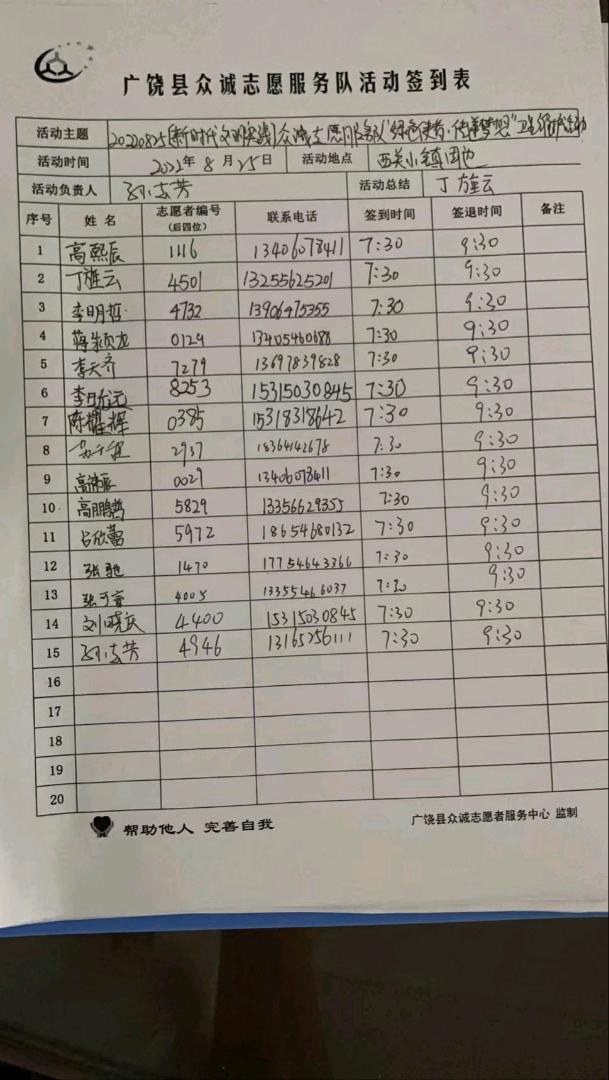 广饶县众诚志愿服务队活动签到表
活动主题 20220825[新时代文明实践]众诚志愿服务队"绿色使者·传递梦想"卫生活动
活动时间 2022年8月25日 活动地点 西关小镇
活动负责人 志芳 活动总结 丁旌云
序号 姓名 志愿者编号(后四位) 联系电话 签到时间 签退时间 备注
1 高熙辰 1116 13406078411 7:30 9:30
2 丁旌云 4501 13255625201 7:30 9:30
3 李明哲 4732 13906475355 7:30 9:30
4 蒋龙 0129 13405460688 7:30 9:30
5 李天齐 7279 13697839828 7:30 9:30
6 李 8253 15315030845 7:30 9:30
7 陈耀辉 0385 15318318642 7:30 9:30
8 2937 18364142678 7:30 9:30
9 高辰 0029 13406078411 7:30 9:30
10 高鹏哲 5829 13356629355 7:30 9:30
11 吕欣蕾 5972 18654680132 7:30 9:30
12 张驰 1470 17754643366 7:30 9:30
13 张于睿 4005 13355466037 7:30 9:30
14 刘晓庆 4400 15315030845 7:30 9:30
15 志芳 4946 13165256111 7:30 9:30
16
17
18
19
20
帮助他人 完善自我 广饶县众诚志愿者服务中心 监制